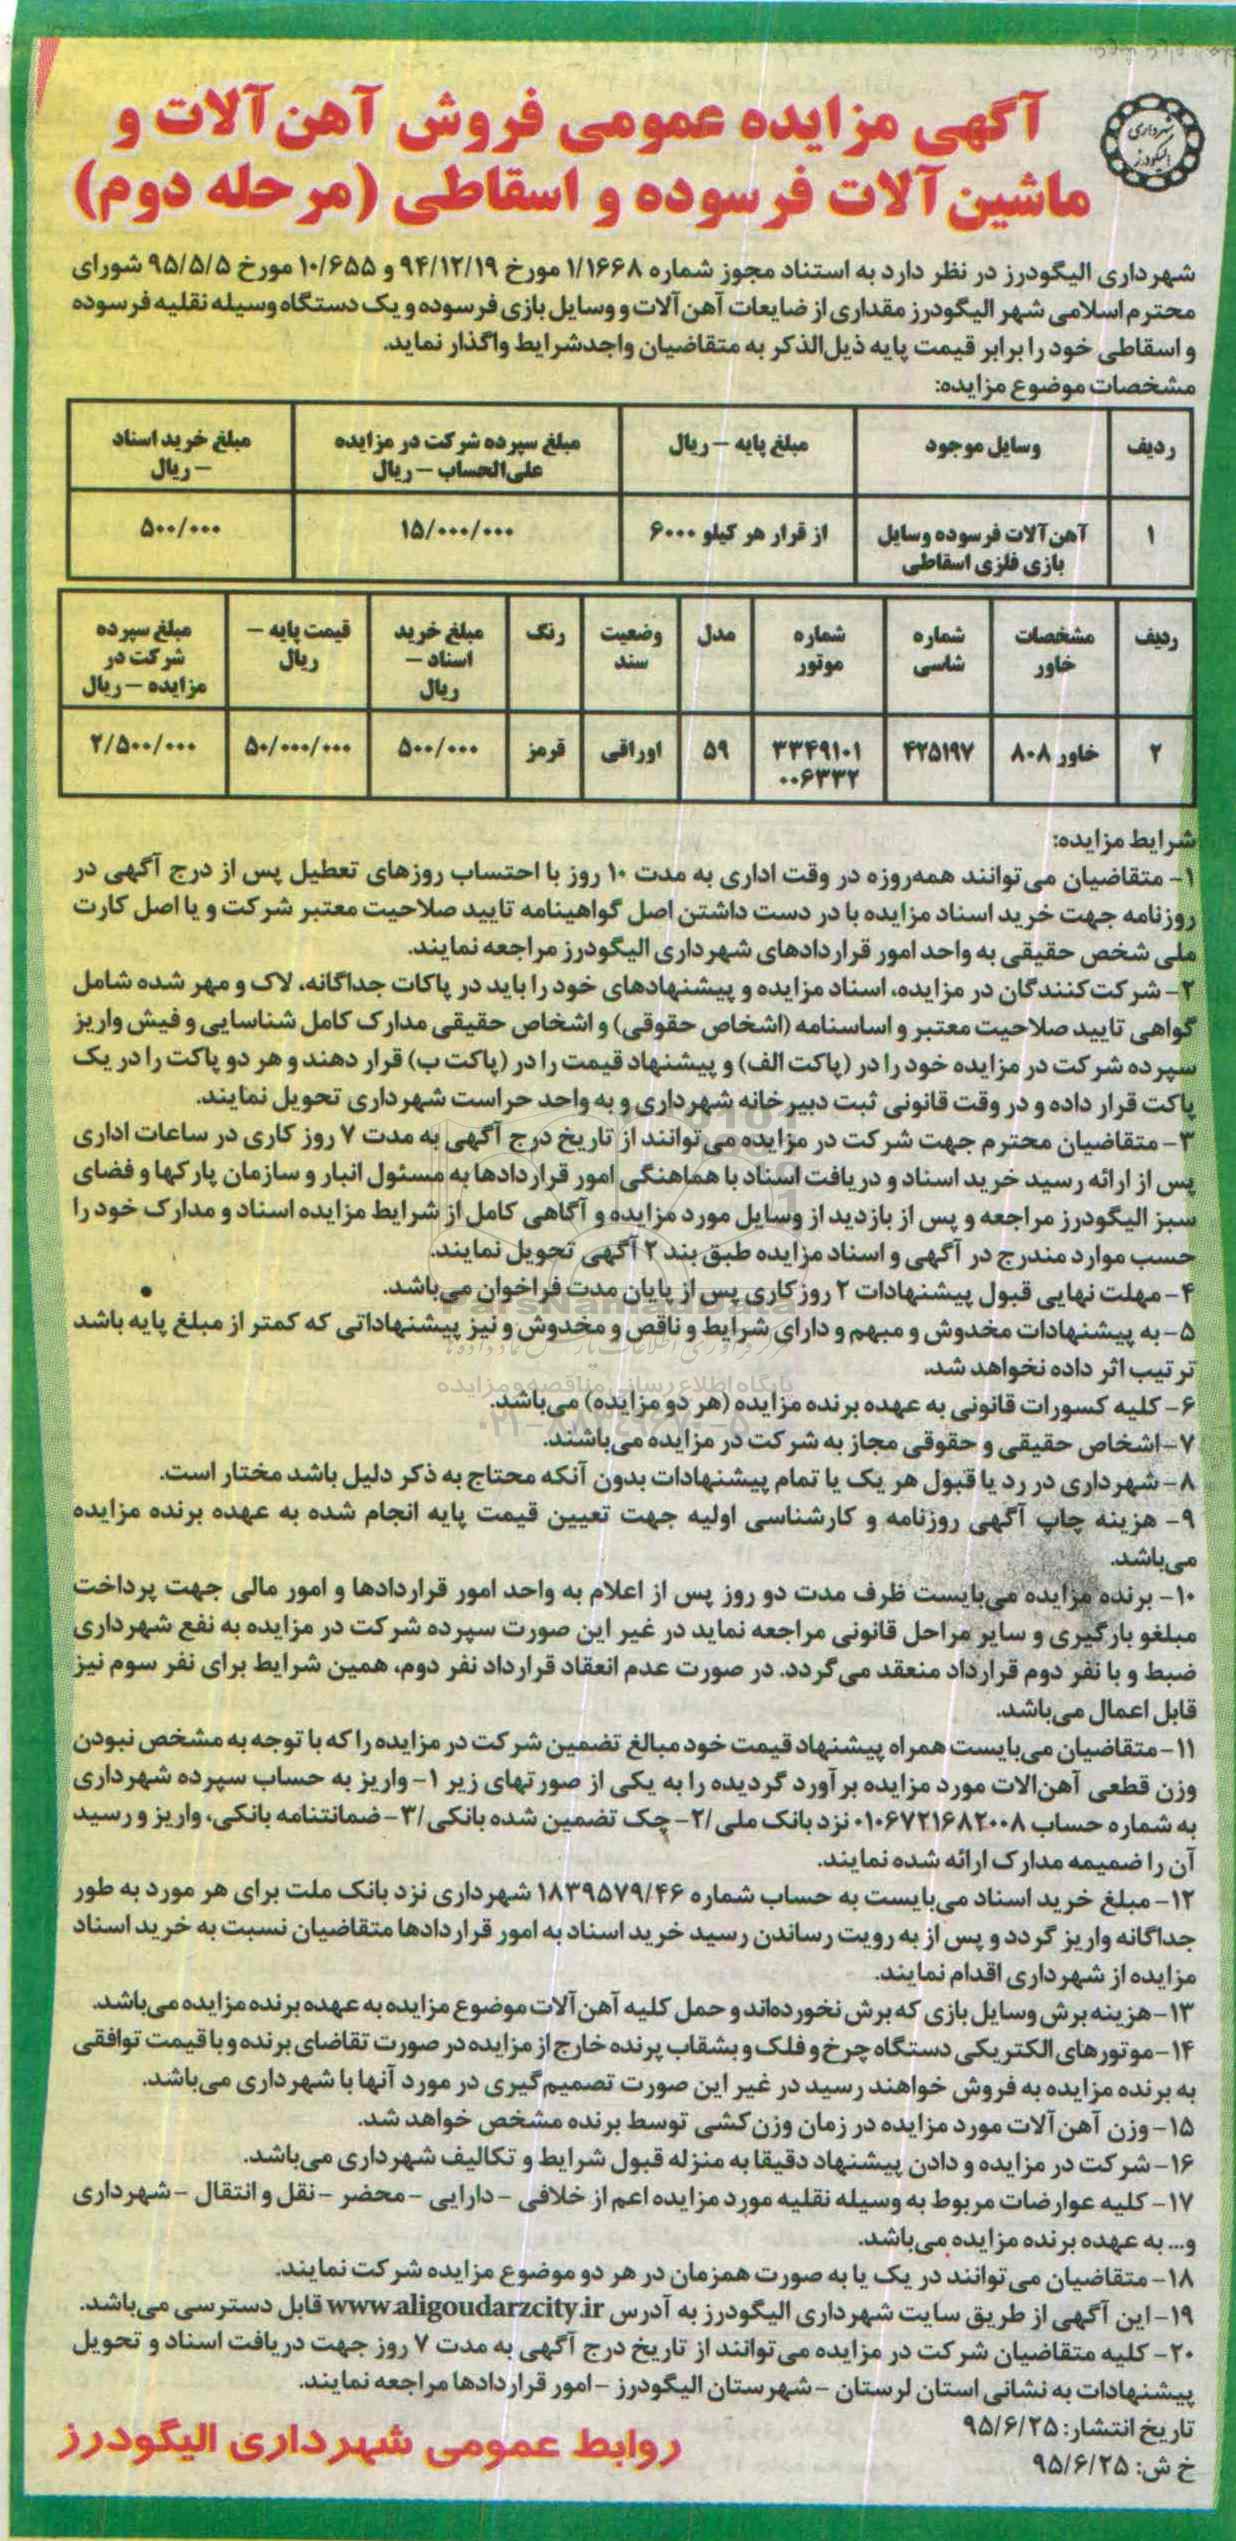 شهرداری
الیگودرز
آگهی مزایده عمومی فروش آهن‌آلات و
ماشین‌آلات فرسوده و اسقاطی (مرحله دوم)
شهرداری الیگودرز در نظر دارد به استناد مجوز شماره ۱/۱۶۶۸ مورخ ۹۴/۱۲/۱۹ و ۱۰/۶۵۵ مورخ ۹۵/۵/۵ شورای
محترم اسلامی شهر الیگودرز مقداری از ضایعات آهن‌آلات و وسایل بازی فرسوده و یک دستگاه وسیله نقلیه فرسوده
و اسقاطی خود را برابر قیمت پایه ذیل‌الذکر به متقاضیان واجد شرایط واگذار نماید.
مشخصات موضوع مزایده:
ردیف | وسایل موجود | مبلغ پایه – ریال | مبلغ سپرده شرکت در مزایده علی‌الحساب – ریال | مبلغ خرید اسناد – ریال
۱ | آهن‌آلات فرسوده وسایل بازی فلزی اسقاطی | از قرار هر کیلو ۶۰۰۰ | ۱۵/۰۰۰/۰۰۰ | ۵۰۰/۰۰۰
ردیف | مشخصات خاور | شماره شاسی | شماره موتور | مدل | وضعیت سند | رنگ | مبلغ خرید اسناد – ریال | قیمت پایه – ریال | مبلغ سپرده شرکت در مزایده – ریال
۲ | خاور ۸۰۸ | ۴۲۵۱۹۷ | ۳۳۴۹۱۰۱ ۰۰۶۳۳۲ | ۵۹ | اوراقی | قرمز | ۵۰۰/۰۰۰ | ۵۰/۰۰۰/۰۰۰ | ۲/۵۰۰/۰۰۰
شرایط مزایده:
۱- متقاضیان می‌توانند همه‌روزه در وقت اداری به مدت ۱۰ روز با احتساب روزهای تعطیل پس از درج آگهی در
روزنامه جهت خرید اسناد مزایده با در دست داشتن اصل گواهینامه تایید صلاحیت معتبر شرکت و یا اصل کارت
ملی شخص حقیقی به واحد امور قراردادهای شهرداری الیگودرز مراجعه نمایند.
۲- شرکت‌کنندگان در مزایده، اسناد مزایده و پیشنهادهای خود را باید در پاکات جداگانه، لاک و مهر شده شامل
گواهی تایید صلاحیت معتبر و اساسنامه (اشخاص حقوقی) و اشخاص حقیقی مدارک کامل شناسایی و فیش واریز
سپرده شرکت در مزایده خود را در (پاکت الف) و پیشنهاد قیمت را در (پاکت ب) قرار دهند و هر دو پاکت را در یک
پاکت قرار داده و در وقت قانونی ثبت دبیرخانه شهرداری و به واحد حراست شهرداری تحویل نمایند.
۳- متقاضیان محترم جهت شرکت در مزایده می‌توانند از تاریخ درج آگهی به مدت ۷ روز کاری در ساعات اداری
پس از ارائه رسید خرید اسناد و دریافت اسناد با هماهنگی امور قراردادها به مسئول انبار و سازمان پارکها و فضای
سبز الیگودرز مراجعه و پس از بازدید از وسایل مورد مزایده و آگاهی کامل از شرایط مزایده اسناد و مدارک خود را
حسب موارد مندرج در آگهی و اسناد مزایده طبق بند ۲ آگهی تحویل نمایند.
۴- مهلت نهایی قبول پیشنهادات ۲ روز کاری پس از پایان مدت فراخوان می‌باشد.
ParsNamadData
۵- به پیشنهادات مخدوش و مبهم و دارای شرایط و ناقص و مخدوش و نیز پیشنهاداتی که کمتر از مبلغ پایه باشد
ترتیب اثر داده نخواهد شد.
پایگاه اطلاع رسانی مناقصه و مزایده
۶- کلیه کسورات قانونی به عهده برنده مزایده (هر دو مزایده) می‌باشد.
۷- اشخاص حقیقی و حقوقی مجاز به شرکت در مزایده می‌باشند.
۸- شهرداری در رد یا قبول هر یک یا تمام پیشنهادات بدون آنکه محتاج به ذکر دلیل باشد مختار است.
۹- هزینه چاپ آگهی روزنامه و کارشناسی اولیه جهت تعیین قیمت پایه انجام شده به عهده برنده مزایده
می‌باشد.
۱۰- برنده مزایده می‌بایست ظرف مدت دو روز پس از اعلام به واحد امور قراردادها و امور مالی جهت پرداخت
مبلغو بارگیری و سایر مراحل قانونی مراجعه نماید در غیر این صورت سپرده شرکت در مزایده به نفع شهرداری
ضبط و با نفر دوم قرارداد منعقد می‌گردد. در صورت عدم انعقاد قرارداد نفر دوم، همین شرایط برای نفر سوم نیز
قابل اعمال می‌باشد.
۱۱- متقاضیان می‌بایست همراه پیشنهاد قیمت خود مبالغ تضمین شرکت در مزایده را که با توجه به مشخص نبودن
وزن قطعی آهن‌الات مورد مزایده برآورد گردیده را به یکی از صورتهای زیر ۱- واریز به حساب سپرده شهرداری
به شماره حساب ۰۱۰۶۷۲۱۶۸۲۰۰۸ نزد بانک ملی /۲- چک تضمین شده بانکی /۳- ضمانتنامه بانکی، واریز و رسید
آن را ضمیمه مدارک ارائه شده نمایند.
۱۲- مبلغ خرید اسناد می‌بایست به حساب شماره ۱۸۳۹۵۷۹/۴۶ شهرداری نزد بانک ملت برای هر مورد به طور
جداگانه واریز گردد و پس از به رویت رساندن رسید خرید اسناد به امور قراردادها متقاضیان نسبت به خرید اسناد
مزایده از شهرداری اقدام نمایند.
۱۳- هزینه برش وسایل بازی که برش نخورده‌اند و حمل کلیه آهن‌آلات موضوع مزایده به عهده برنده مزایده می‌باشد.
۱۴- موتورهای الکتریکی دستگاه چرخ و فلک و بشقاب پرنده خارج از مزایده در صورت تقاضای برنده و با قیمت توافقی
به برنده مزایده به فروش خواهند رسید در غیر این صورت تصمیم‌گیری در مورد آنها با شهرداری می‌باشد.
۱۵- وزن آهن‌آلات مورد مزایده در زمان وزن‌کشی توسط برنده مشخص خواهد شد.
۱۶- شرکت در مزایده و دادن پیشنهاد دقیقا به منزله قبول شرایط و تکالیف شهرداری می‌باشد.
۱۷- کلیه عوارضات مربوط به وسیله نقلیه مورد مزایده اعم از خلافی – دارایی – محضر – نقل و انتقال – شهرداری
و... به عهده برنده مزایده می‌باشد.
۱۸- متقاضیان می‌توانند در یک یا به صورت همزمان در هر دو موضوع مزایده شرکت نمایند.
۱۹- این آگهی از طریق سایت شهرداری الیگودرز به آدرس www.aligoudarzcity.ir قابل دسترسی می‌باشد.
۲۰- کلیه متقاضیان شرکت در مزایده می‌توانند از تاریخ درج آگهی به مدت ۷ روز جهت دریافت اسناد و تحویل
پیشنهادات به نشانی استان لرستان – شهرستان الیگودرز – امور قراردادها مراجعه نمایند.
تاریخ انتشار: ۹۵/۶/۲۵
خ ش: ۹۵/۶/۲۵
روابط عمومی شهرداری الیگودرز